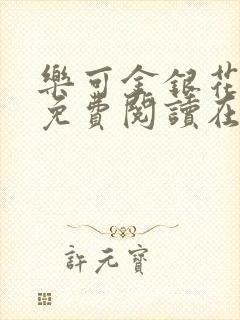 樂可金銀花
免費閱讀在
許元寶